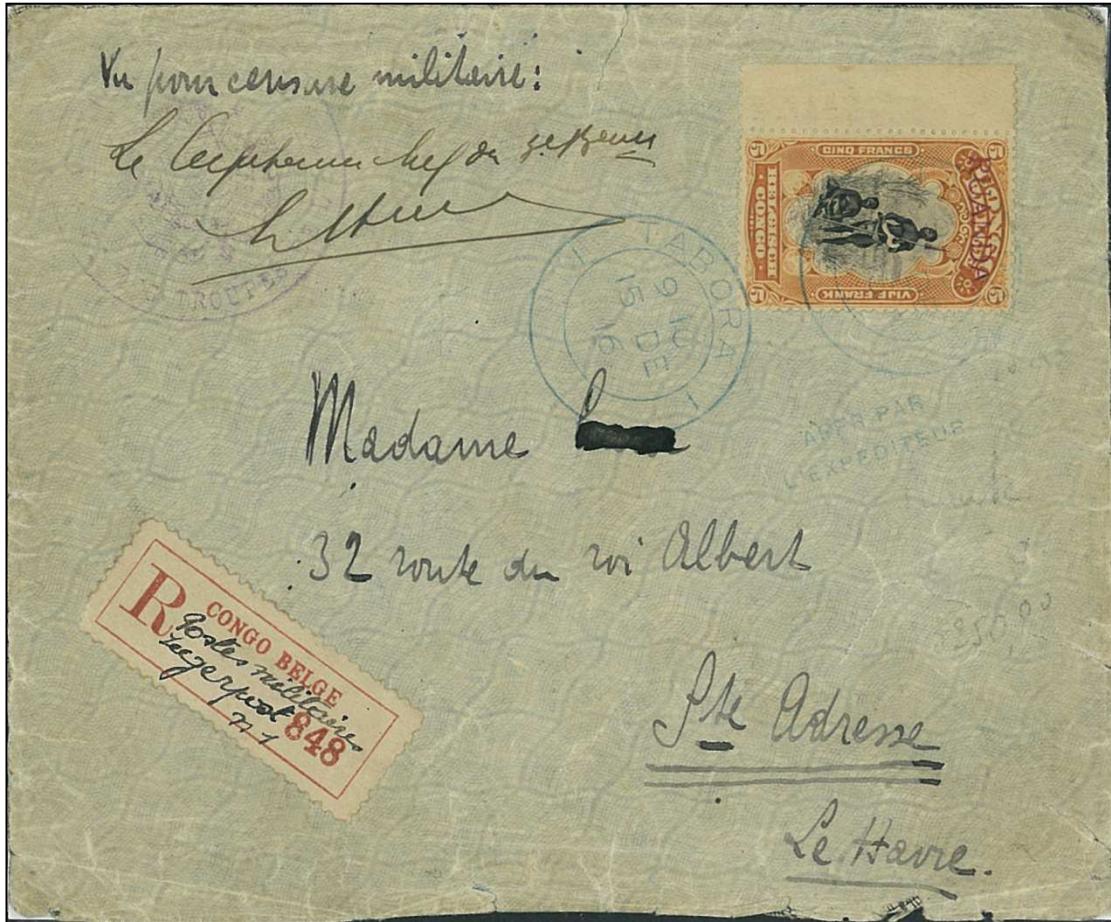 Vu pour censure militaire:
Le Capitaine
TROUPES
5 CINQ FRANCS 5
RUANDA
BELGISCH
CONGO
5 VIJF FRANK 5
TABORA 1
9
15 DE 16
APRR PAR
L'EXPEDITEUR
Madame
32 route du roi Albert
Ste Adresse
Le Havre.
R
CONGO BELGE
Postes militaires
Legerpost
n 1
848